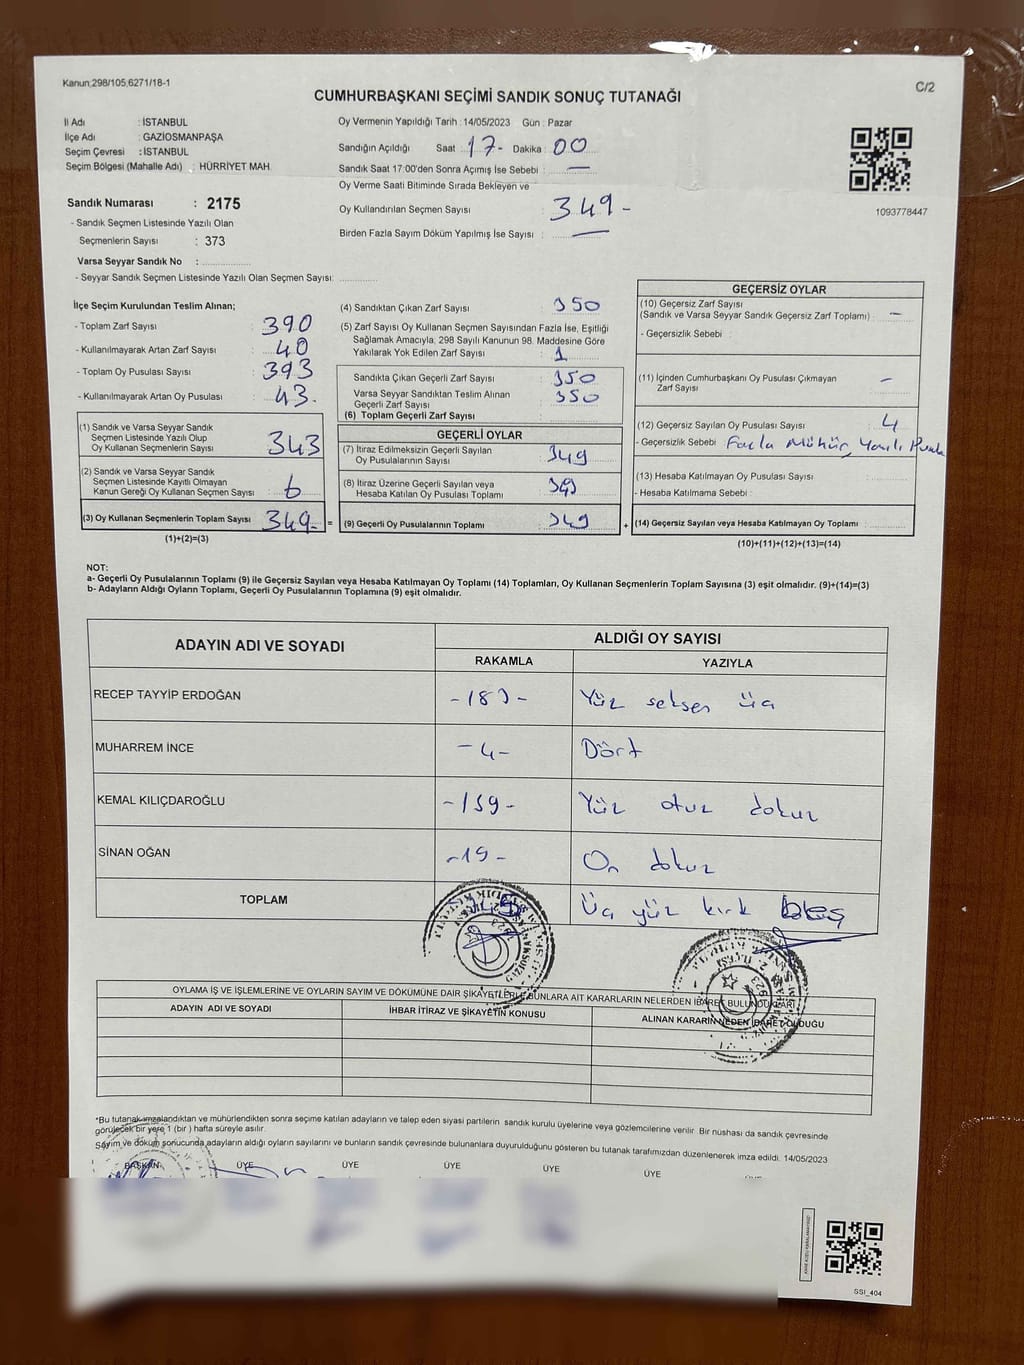 Kanun:298/105,6271/18-1
C/2
CUMHURBAŞKANI SEÇİMİ SANDIK SONUÇ TUTANAĞI
İl Adı : İSTANBUL
İlçe Adı : GAZİOSMANPAŞA
Seçim Çevresi : İSTANBUL
Seçim Bölgesi (Mahalle Adı) : HÜRRİYET MAH.
Oy Vermenin Yapıldığı Tarih : 14/05/2023 Gün : Pazar
Sandığın Açıldığı Saat 17- Dakika 00
Sandık Saat 17:00'den Sonra Açımış İse Sebebi : —
Oy Verme Saati Bitiminde Sırada Bekleyen ve
Oy Kullandırılan Seçmen Sayısı : 349-
Birden Fazla Sayım Döküm Yapılmış İse Sayısı : —
1093778447
Sandık Numarası : 2175
- Sandık Seçmen Listesinde Yazılı Olan
Seçmenlerin Sayısı : 373
Varsa Seyyar Sandık No :
- Seyyar Sandık Seçmen Listesinde Yazılı Olan Seçmen Sayısı:
İlçe Seçim Kurulundan Teslim Alınan;
- Toplam Zarf Sayısı : 390
- Kullanılmayarak Artan Zarf Sayısı : 40
- Toplam Oy Pusulası Sayısı : 393
- Kullanılmayarak Artan Oy Pusulası : 43.
(1) Sandık ve Varsa Seyyar Sandık
Seçmen Listesinde Yazılı Olup
Oy Kullanan Seçmenlerin Sayısı 343
(2) Sandık ve Varsa Seyyar Sandık
Seçmen Listesinde Kayıtlı Olmayan
Kanun Gereği Oy Kullanan Seçmen Sayısı 6
(3) Oy Kullanan Seçmenlerin Toplam Sayısı 349-
(1)+(2)=(3)
(4) Sandıktan Çıkan Zarf Sayısı : 350
(5) Zarf Sayısı Oy Kullanan Seçmen Sayısından Fazla İse, Eşitliği
Sağlamak Amacıyla, 298 Sayılı Kanunun 98. Maddesine Göre
Yakılarak Yok Edilen Zarf Sayısı : 1
Sandıkta Çıkan Geçerli Zarf Sayısı : 350
Varsa Seyyar Sandıktan Teslim Alınan
Geçerli Zarf Sayısı : 350
(6) Toplam Geçerli Zarf Sayısı :
GEÇERLİ OYLAR
(7) İtiraz Edilmeksizin Geçerli Sayılan
Oy Pusulalarının Sayısı : 349
(8) İtiraz Üzerine Geçerli Sayılan veya
Hesaba Katılan Oy Pusulası Toplamı : 349
= (9) Geçerli Oy Pusulalarının Toplamı : 349 +
GEÇERSİZ OYLAR
(10) Geçersiz Zarf Sayısı
(Sandık ve Varsa Seyyar Sandık Geçersiz Zarf Toplamı) : —
- Geçersizlik Sebebi :
(11) İçinden Cumhurbaşkanı Oy Pusulası Çıkmayan
Zarf Sayısı : —
(12) Geçersiz Sayılan Oy Pusulası Sayısı : 4
- Geçersizlik Sebebi : Fazla Mühür, Yazılı
(13) Hesaba Katılmayan Oy Pusulası Sayısı :
- Hesaba Katılmama Sebebi :
(14) Geçersiz Sayılan veya Hesaba Katılmayan Oy Toplamı :
(10)+(11)+(12)+(13)=(14)
NOT:
a- Geçerli Oy Pusulalarının Toplamı (9) ile Geçersiz Sayılan veya Hesaba Katılmayan Oy Toplamı (14) Toplamları, Oy Kullanan Seçmenlerin Toplam Sayısına (3) eşit olmalıdır. (9)+(14)=(3)
b- Adayların Aldığı Oyların Toplamı, Geçerli Oy Pusulalarının Toplamına (9) eşit olmalıdır.
ADAYIN ADI VE SOYADI
ALDIĞI OY SAYISI
RAKAMLA YAZIYLA
RECEP TAYYİP ERDOĞAN -183- Yüz seksen üç
MUHARREM İNCE -4- Dört
KEMAL KILIÇDAROĞLU -139- Yüz otuz dokuz
SİNAN OĞAN -19- On dokuz
TOPLAM Üç yüz kırk beş
OYLAMA İŞ VE İŞLEMLERİNE VE OYLARIN SAYIM VE DÖKÜMÜNE DAİR ŞİKAYETLERLE BUNLARA AİT KARARLARIN NELERDEN İBARET BULUNDUKLARI
ADAYIN ADI VE SOYADI İHBAR İTİRAZ VE ŞİKAYETİN KONUSU ALINAN KARARIN NEDEN İBARET OLDUĞU
*Bu tutanak imzalandıktan ve mühürlendikten sonra seçime katılan adayların ve talep eden siyasi partilerin sandık kurulu üyelerine veya gözlemcilerine verilir. Bir nüshası da sandık çevresinde
görülecek bir yere 1 (bir) hafta süreyle asılır.
Sayım ve döküm sonucunda adayların aldığı oyların sayılarını ve bunların sandık çevresinde bulunanlara duyurulduğunu gösteren bu tutanak tarafımızdan düzenlenerek imza edildi. 14/05/2023
BAŞKAN ÜYE ÜYE ÜYE ÜYE ÜYE
SSI_404